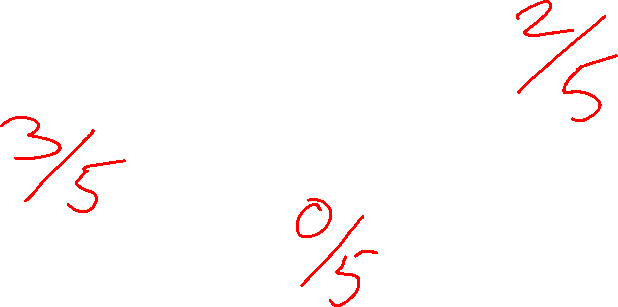 2/5
3/5
0/5